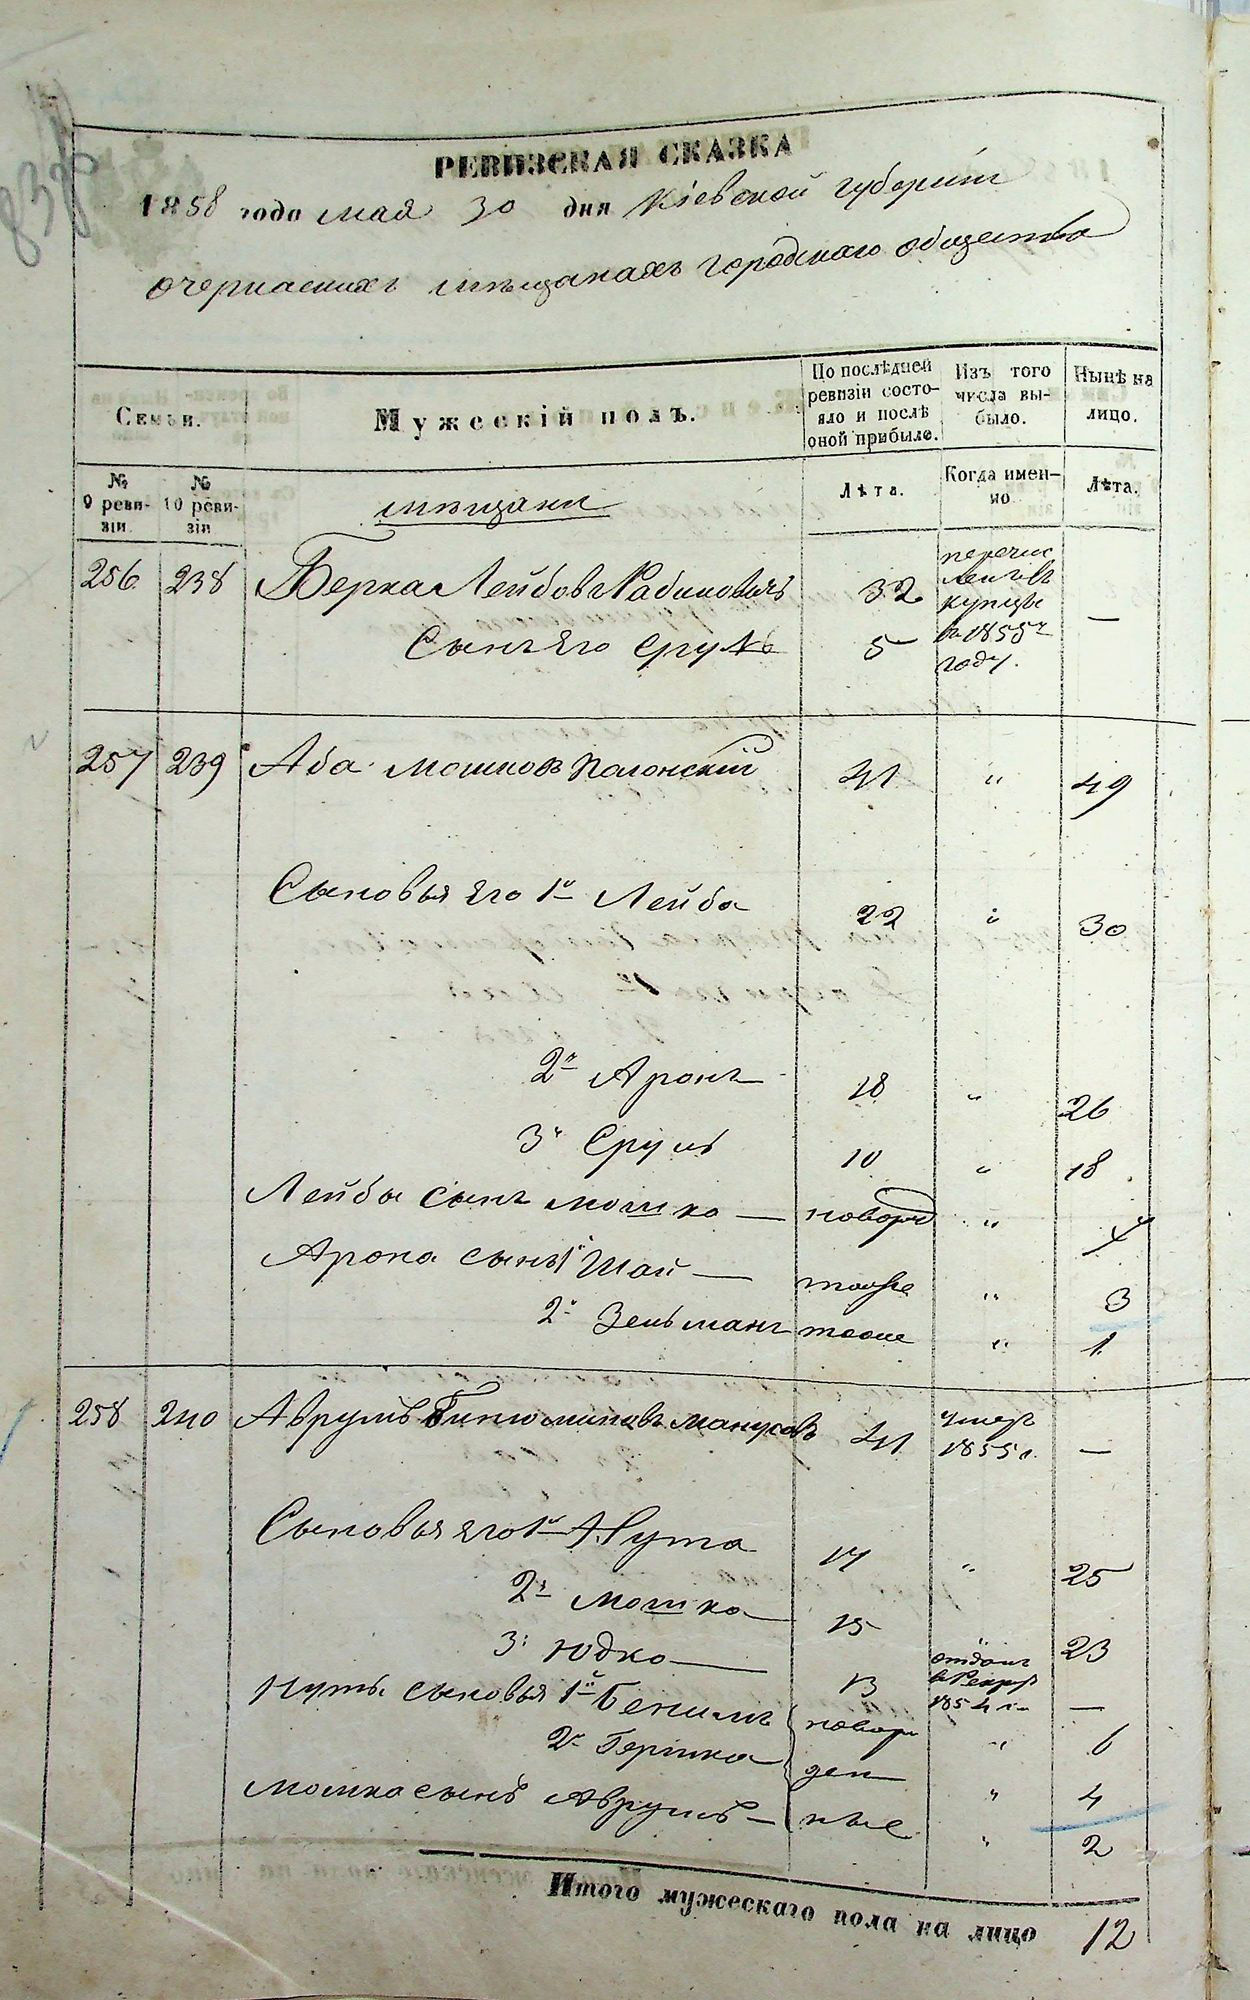 РЕВИЗСКАЯ СКАЗКА
1858 года мая 30 дня Кіевской губерніи
очеркаскихъ мѣщанахъ городскаго общества
Семьи.
Мужескій полъ.
По послѣдней ревизіи состояло и послѣ оной прибыло.
Изъ того числа выбыло.
Нынѣ на лицо.
№ 9 ревизіи.
№ 10 ревизіи
мѣщани
Лѣта.
Когда именно
Лѣта.
256 238 Берка Лейбов Рабиновичъ 32 перечисленъ въ купцы въ 1855 году. —
Сынъ Его Сруль 5
257 239 Аба Мошков Полонскій 41 " 49
Сыновья Его 1й Лейба 22 " 30
2й Аронъ 18 " 26
3й Сруль 10 " 18
Лейбы сынъ Мошко — новорж " 4
Арона сынъ 1й Шай — тоже " 3
2й Зельманъ тоже " 1
258 240 Аврумъ 41 умер 1855 г. —
Сыновья Его 1й Нута 17 " 25
2й Мошко 15 " 23
3й Юдко — 13 отданъ в Рекр 1854 г. —
Нуты сыновья 1й Бенимъ новорж " 6
2й Гершко ден " 4
Мошка сынъ Аврумъ — ные " 2
Итого мужескаго пола на лицо 12